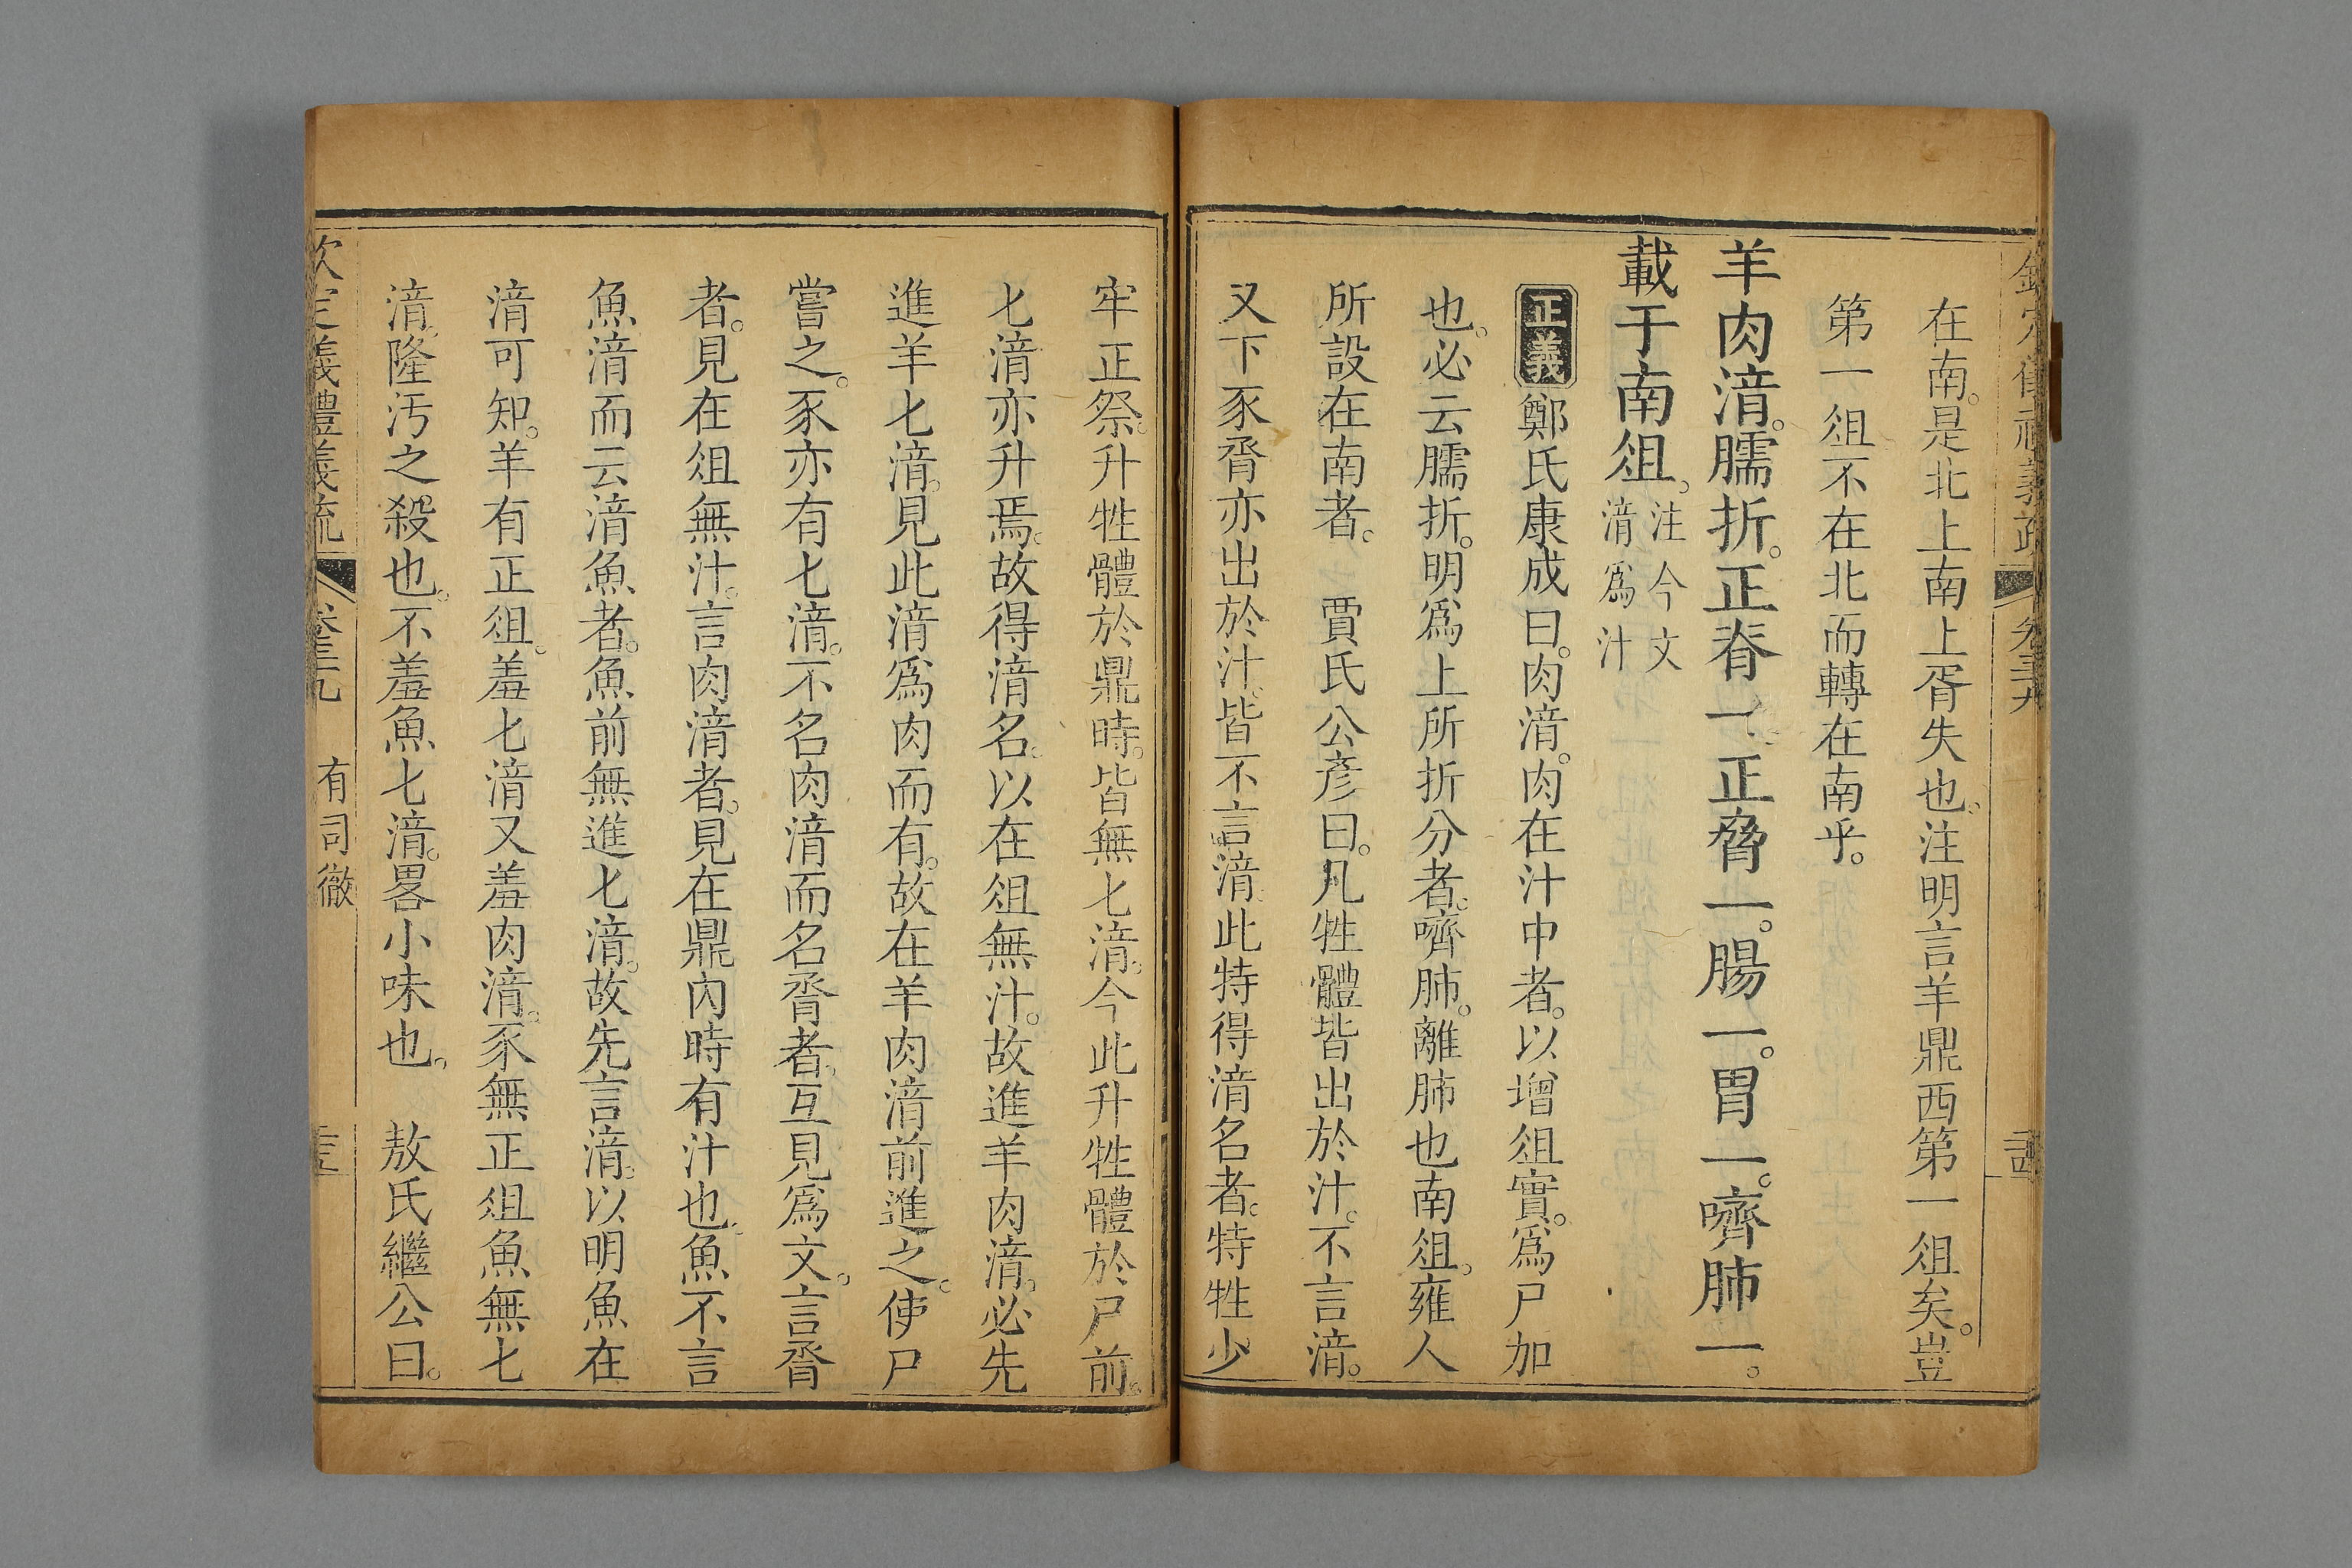 在南。是北上南上胥失也。注明言羊鼎西第一俎矣。豈
第一俎不在北而轉在南乎。
羊肉湆。臑折。正脊一。正脅一。腸一。胃一。嚌肺一。
載于南俎。注今文
湆爲汁
正義鄭氏康成曰。肉湆。肉在汁中者。以增俎實。爲尸加
也。必云臑折。明爲上所折分者。嚌肺。離肺也南俎。雍人
所設在南者。 賈氏公彥曰。凡牲體皆出於汁。不言湆。
又下豕脀亦出於汁。皆不言湆。此特得湆名者。特牲少
牢正祭。升牲體於鼎時。皆無匕湆。今此升牲體於尸前。
匕湆亦升焉。故得湆名。以在俎無汁。故進羊肉湆。必先
進羊匕湆。見此湆爲肉而有。故在羊肉湆前進之。使尸
嘗之。豕亦有匕湆。不名肉湆而名脀者。互見爲文。言脀
者。見在俎無汁。言肉湆者。見在鼎內時有汁也。魚不言
魚湆而云湆魚者。魚前無進匕湆。故先言湆。以明魚在
湆可知。羊有正俎。羞匕湆又羞肉湆。豕無正俎魚無匕
湆。隆汚之殺也。不羞魚匕湆。畧小味也。 敖氏繼公曰。
欽定義禮義疏 卷三十九 有司徹